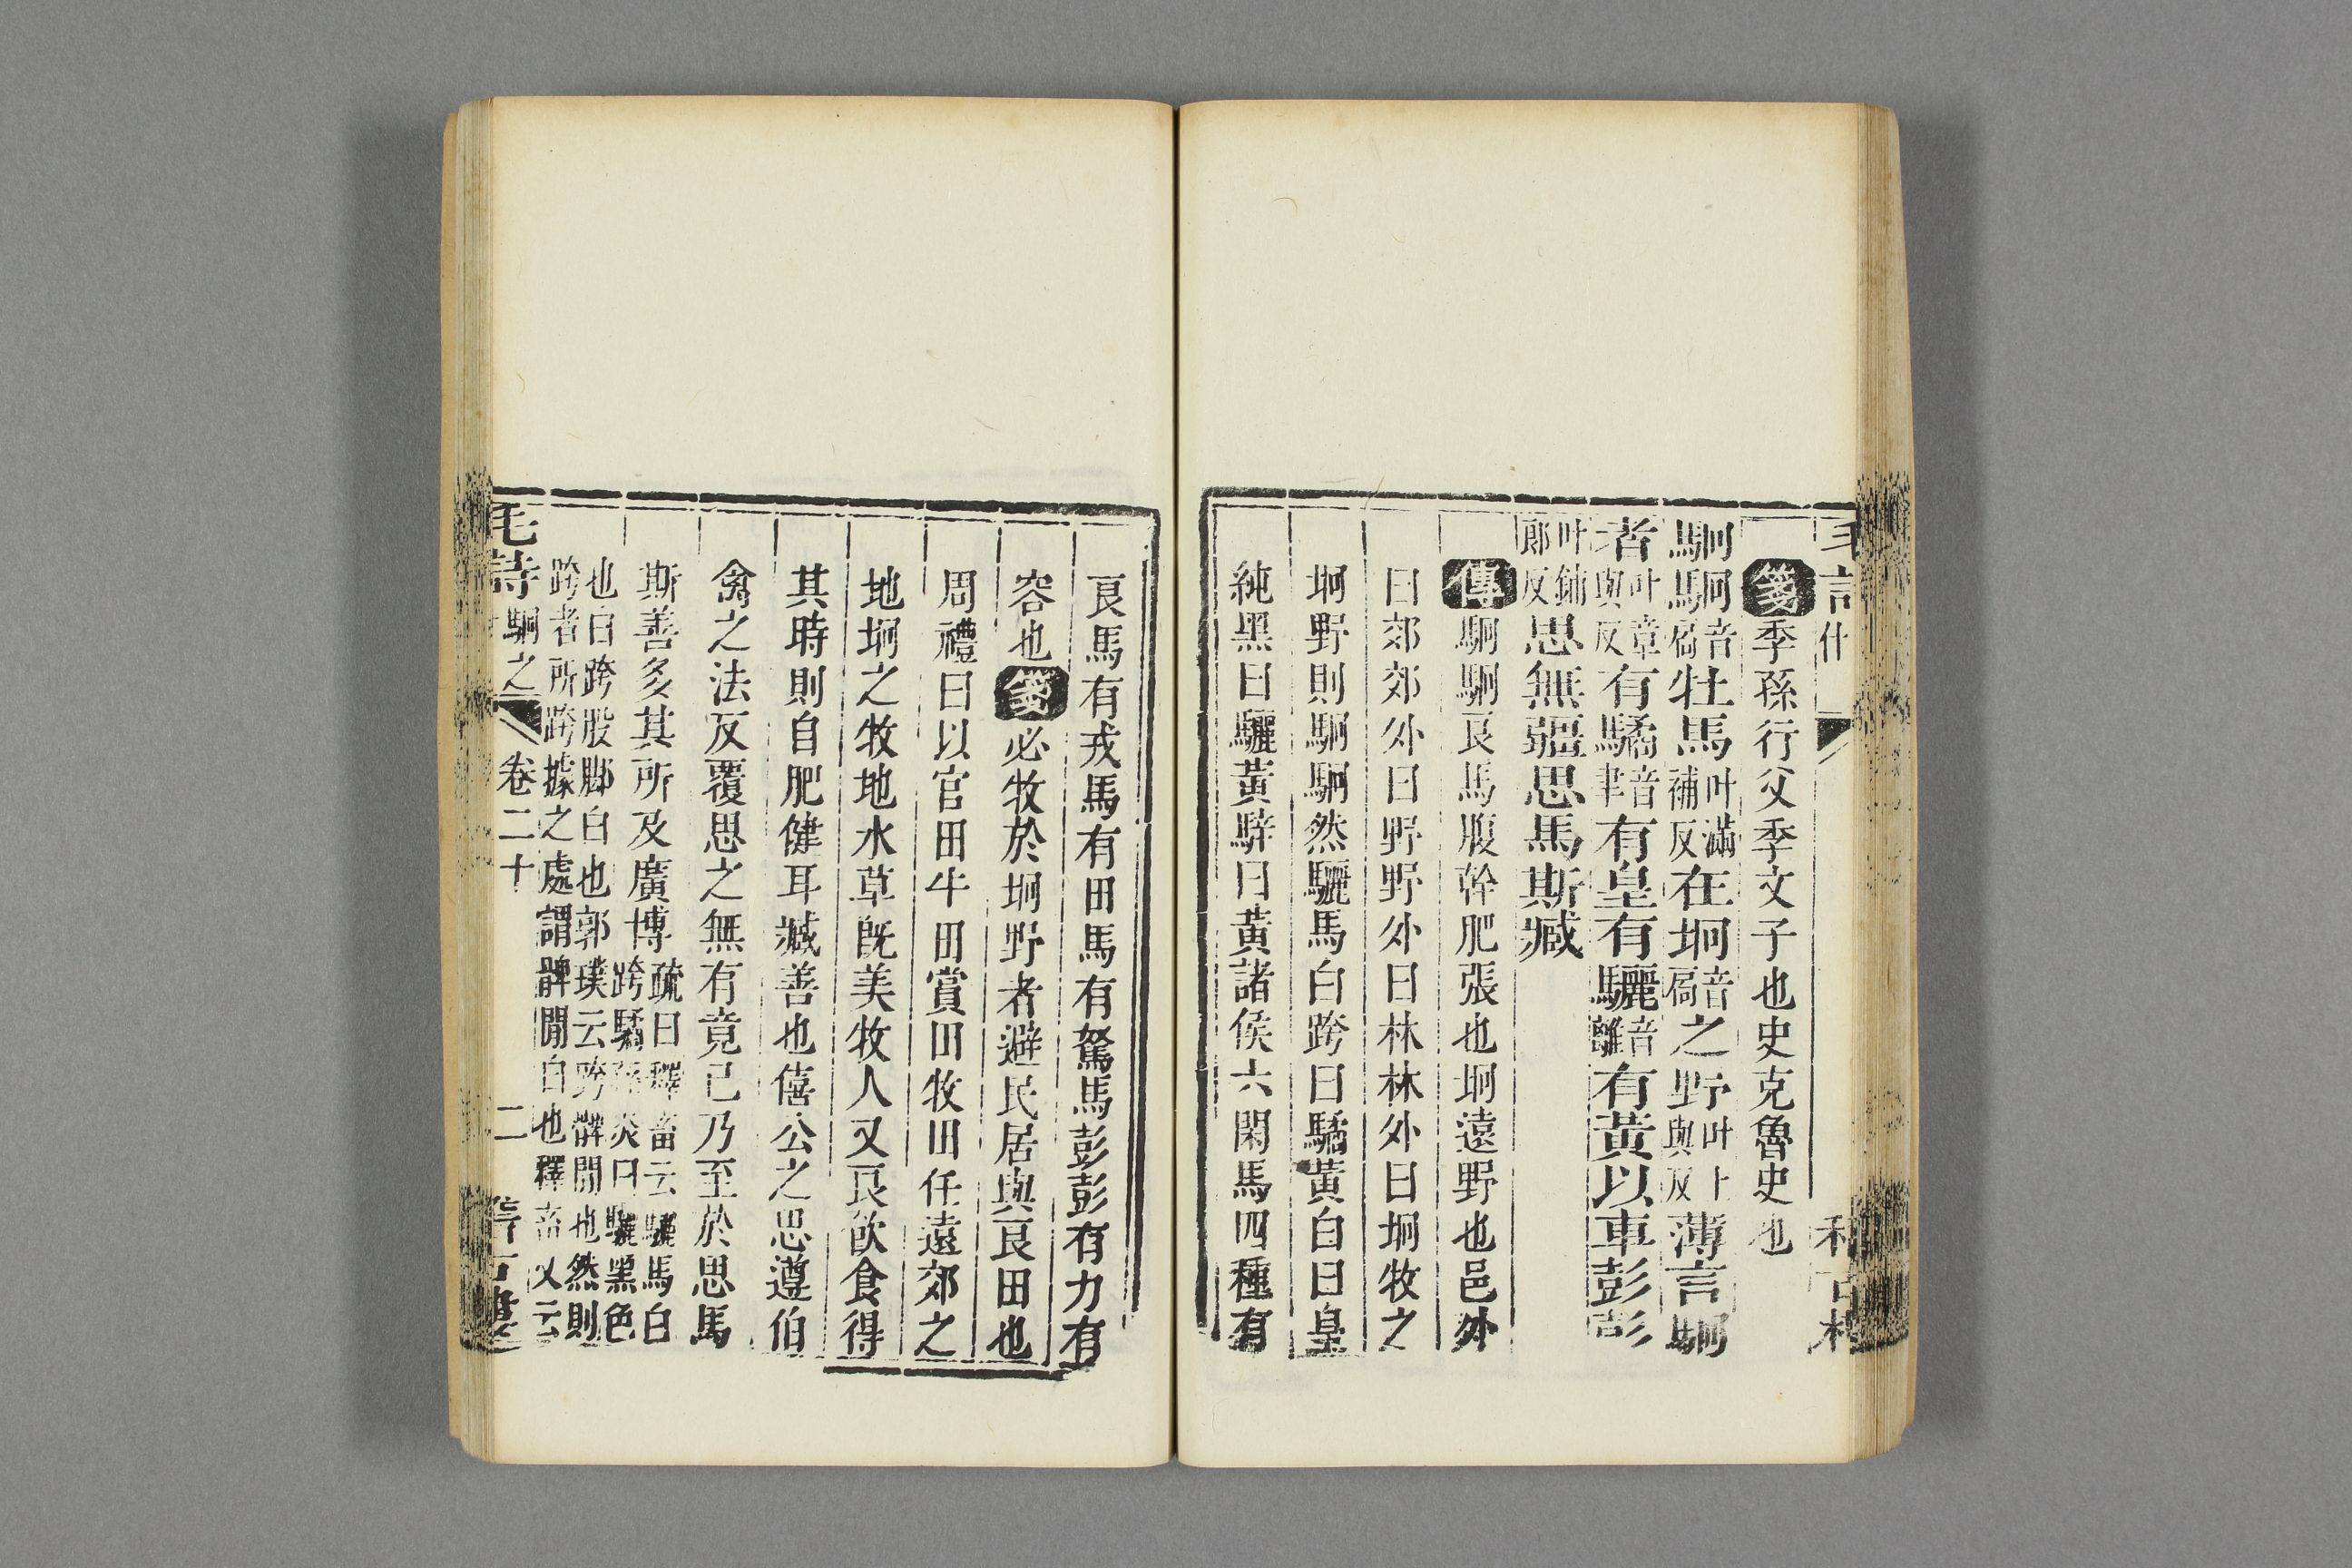 箋季孫行父季文子也史克魯史也
駉駉音扃牡馬叶滿補反在坰音扃之野叶上與反薄言駉
者叶章與反有驈音聿有皇有驪音離有黃以車彭彭
叶鋪郞反思無疆思馬斯臧
傳駉駉良馬腹幹肥張也坰遠野也邑外
曰郊郊外曰野野外曰林林外曰坰牧之
坰野則駉駉然驪馬白跨曰驈黃白曰皇
純黑曰驪黃騂曰黃諸侯六閑馬四種有
良馬有戎馬有田馬有駑馬彭彭有力有
容也箋必牧於坰野者避民居與良田也
周禮曰以官田牛田賞田牧田任遠郊之
地坰之牧地水草旣美牧人又良飮食得
其時則自肥健耳臧善也僖公之思遵伯
禽之法反覆思之無有竟已乃至於思馬
斯善多其所及廣博疏曰釋畜云驪馬白
跨驈孫炎曰驪黑色
也白跨股腳白也郭璞云跨髀間也然則
跨者所跨據之處謂髀間白也釋畜又云
毛詩 駉之 卷二十 二